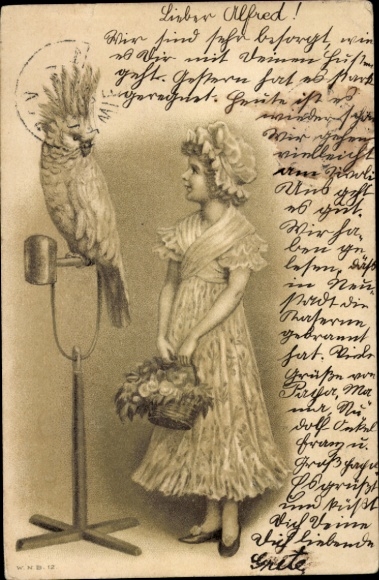 Lieber Alfred!
Wir sind sehr besorgt, wie
es Dir mit Deinem Husten
geht. Gestern hat es stark
geregnet. Heute ist es
wieder schön
Wir gehen
vielleicht
am
Uns geht
es gut.
Wir ha-
ben ge
lesen, daß
in Neu-
stadt die
Kaserne
gebrannt
hat. Viele
Grüße von
Papa, Ma
ma, Ru
dolf Onkel
Franz u.
Großpapa
Es grüßt
und küßt
Dich Deine
Dich liebende
Grete
W.N.B. 12